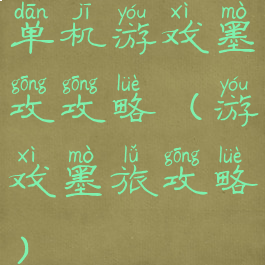 dān jī yóu xì mò
单机游戏墨
gōng gōng lüè yóu
攻攻略（游
xì mò lǚ gōng lüè
戏墨旅攻略
）